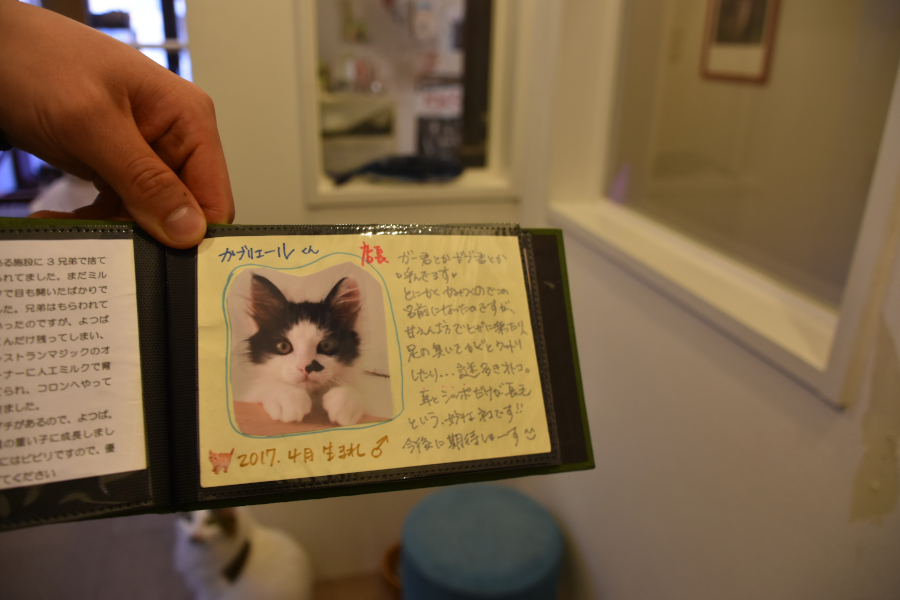 ある施設に3兄弟で捨て
られてました。まだミル
クで目も開いたばかりで
した。兄弟はもらわれて
いったのですが、よつば
くんだけ残ってしまい、
レストランマジックのオ
ーナーに人工ミルクで育
てられ、コロンへやって
きました。
ブチがあるので、よつば。
の重い子に成長しまし
にはビビりですので、優
てください
ガブリエール くん
店長
ガー君とかガブ君とか
呼んでます♥
とにかく かみつくのでこの
名前になったのですが、
甘えんぼうで
足の臭いで ウットリ
したり... 謎多きオトコ。
耳とシッポだけが長毛
という、妙なネコです!!
今後に期待しまーす
2017.4月 生まれ ♂